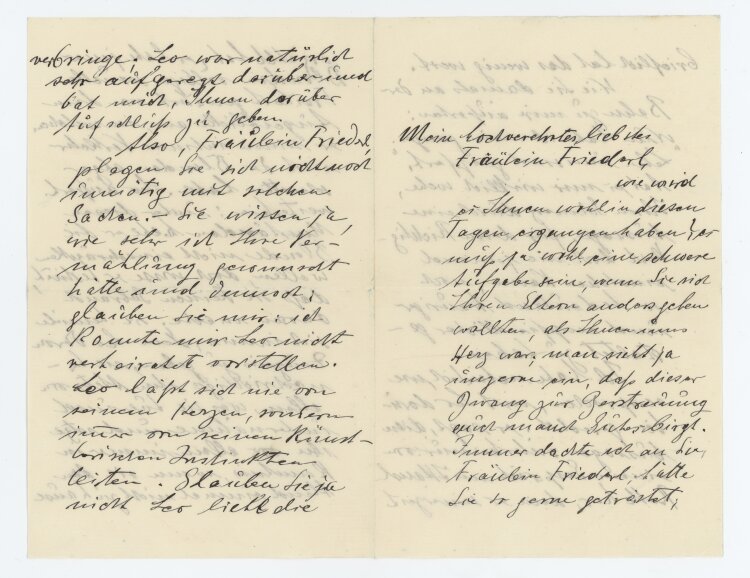 verbringe. Leo war natürlich
sehr aufgeregt darüber und
bat mich, Ihnen darüber
Aufschluß zu geben.
Also, Fräulein Friederl,
plagen Sie sich nicht noch
unnötig mit solchen
Sachen. – Sie wissen ja,
wie sehr ich Ihre Ver-
mählung gewünscht
hätte und dennoch:
glauben Sie mir: ich
konnte mir Leo nicht
verheiratet vorstellen.
Leo läßt sich nie von
seinem Herzen, sondern
immer von seinen Künst-
lerischen Instinkten
leiten. Glauben Sie ja
nicht Leo liebt die
Mein hochverehrtes, liebstes
Fräulein Friederl,
wie wird
es Ihnen wohl in diesen
Tagen ergangen haben? es
muß ja wohl eine schwere
Aufgabe sein, wenn Sie sich
Ihren Eltern anders geben
wollten, als Ihnen ums
Herz war, man sieht ja
ungerne ein, daß dieser
Zwang zur Zerstreuung
auch manch Gutes birgt.
Immer dachte ich an Sie,
Fräulein Friederl hätte
Sie so gerne getröstet,